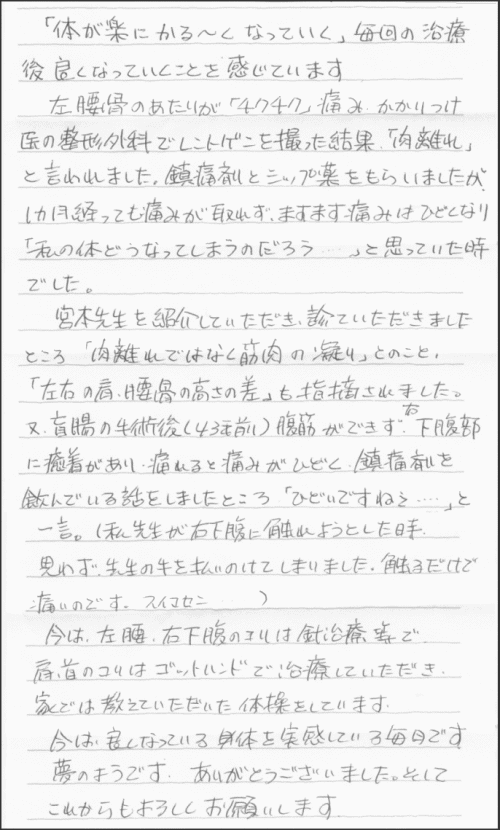 「体が楽にかる〜くなっていく」毎回の治療
後良くなっていくことを感じています
左腰骨のあたりが「チクチク」痛み、かかりつけ
医の整形外科でレントゲンを撮った結果、「肉離れ」
と言われました。鎮痛剤とシップ薬をもらいましたが、
1カ月経っても痛みが取れず、ますます痛みはひどくなり
「私の体どうなってしまうのだろう……」と思っていた時
でした。
宮本先生を紹介していただき、診ていただきました
ところ「肉離れではなく筋肉の凝り」とのこと。
「左右の肩、腰骨の高さの差」も指摘されました。
又、盲腸の手術後(43年前)腹筋ができず、右下腹部
に癒着があり、疲れると痛みがひどく、鎮痛剤を
飲んでいる話をしましたところ「ひどいですねぇ……」と
一言。(私、先生が右下腹に触れようとした時、
思わず、先生の手を払いのけてしまいました。触るだけで
痛いのです。スイマセン……)
今は、左腰、右下腹のコリは針治療等で
肩、首のコリはゴットハンドで治療していただき、
家では教えていただいた体操をしています。
今は、良くなっている身体を実感している毎日です
夢のようです。ありがとうございました。そして
これからもよろしくお願いします